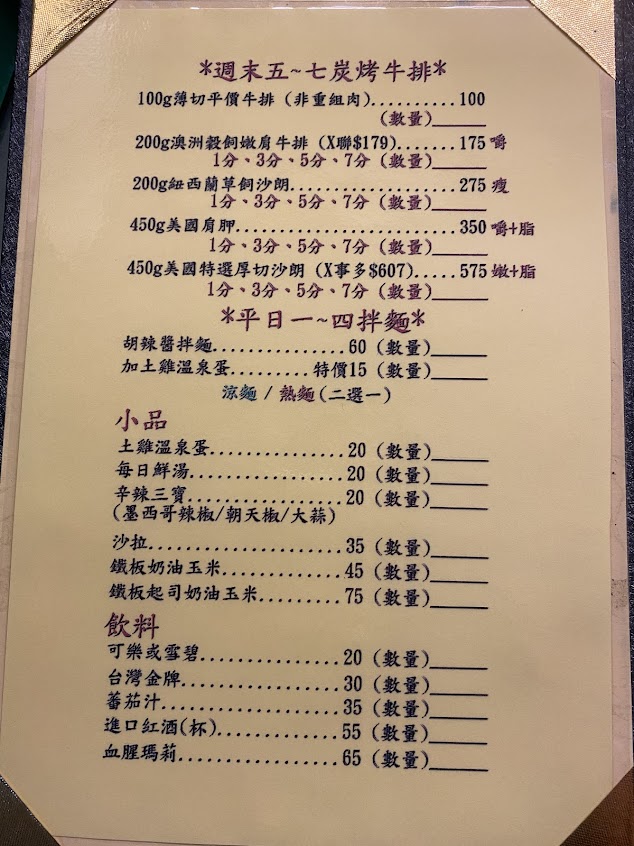 *週末五~七炭烤牛排*
100g薄切平價牛排 (非重組肉)..........100
(數量)______
200g澳洲穀飼嫩肩牛排 (X聯$179).......175 嚼
1分、3分、5分、7分 (數量)______
200g紐西蘭草飼沙朗....................275 瘦
1分、3分、5分、7分 (數量)______
450g美國肩胛..........................350 嚼+脂
1分、3分、5分、7分 (數量)______
450g美國特選厚切沙朗 (X事多$607).....575 嫩+脂
1分、3分、5分、7分 (數量)______
*平日一~四拌麵*
胡辣醬拌麵................60 (數量)______
加土雞溫泉蛋.........特價15 (數量)______
涼麵 / 熱麵(二選一)
小品
土雞溫泉蛋................20 (數量)______
每日鮮湯..................20 (數量)______
辛辣三寶..................20 (數量)______
(墨西哥辣椒/朝天椒/大蒜)
沙拉......................35 (數量)______
鐵板奶油玉米..............45 (數量)______
鐵板起司奶油玉米..........75 (數量)______
飲料
可樂或雪碧................20 (數量)______
台灣金牌..................30 (數量)______
蕃茄汁....................35 (數量)______
進口紅酒(杯)..............55 (數量)______
血腥瑪莉..................65 (數量)______